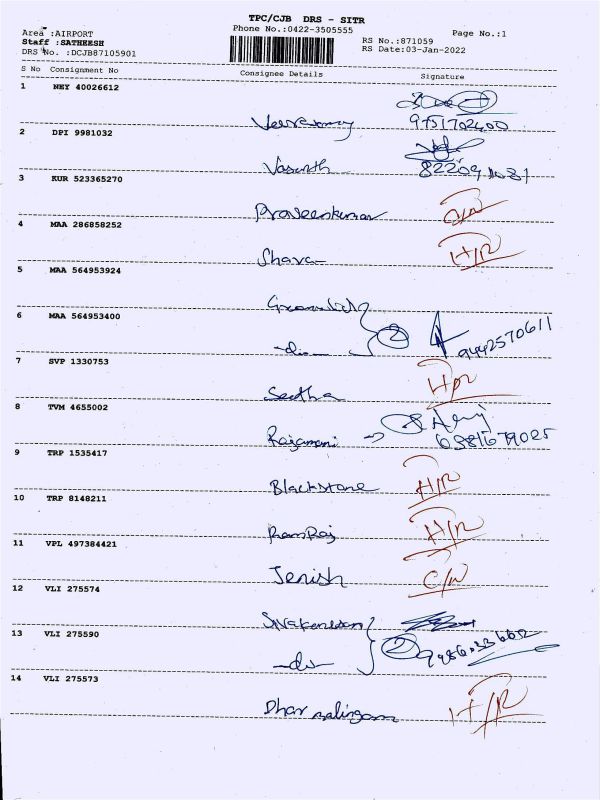 TPC/CJB DRS - SITR
Area :AIRPORT
Phone No.:0422-3505555
Page No.:1
Staff :SATHEESH
RS No.:871059
DRS No. :DCJB87105901
RS Date:03-Jan-2022
S No Consignment No Consignee Details Signature
1 NEY 40026612
9751702400
2 DPI 9981032
Vasanth
3 KUR 523365270
Praveenkumar
4 MAA 286858252
Shava H/R
5 MAA 564953924
6 MAA 564953400
-do- 2 9442570611
7 SVP 1330753
Seetha
8 TVM 4655002
Rajamani
6381679025
9 TRP 1535417
Blackstone H/R
10 TRP 8148211
RamRaj H/R
11 VPL 497384421
Jenish
12 VLI 275574
13 VLI 275590
-do- 2
14 VLI 275573
Dharmalingam H/R